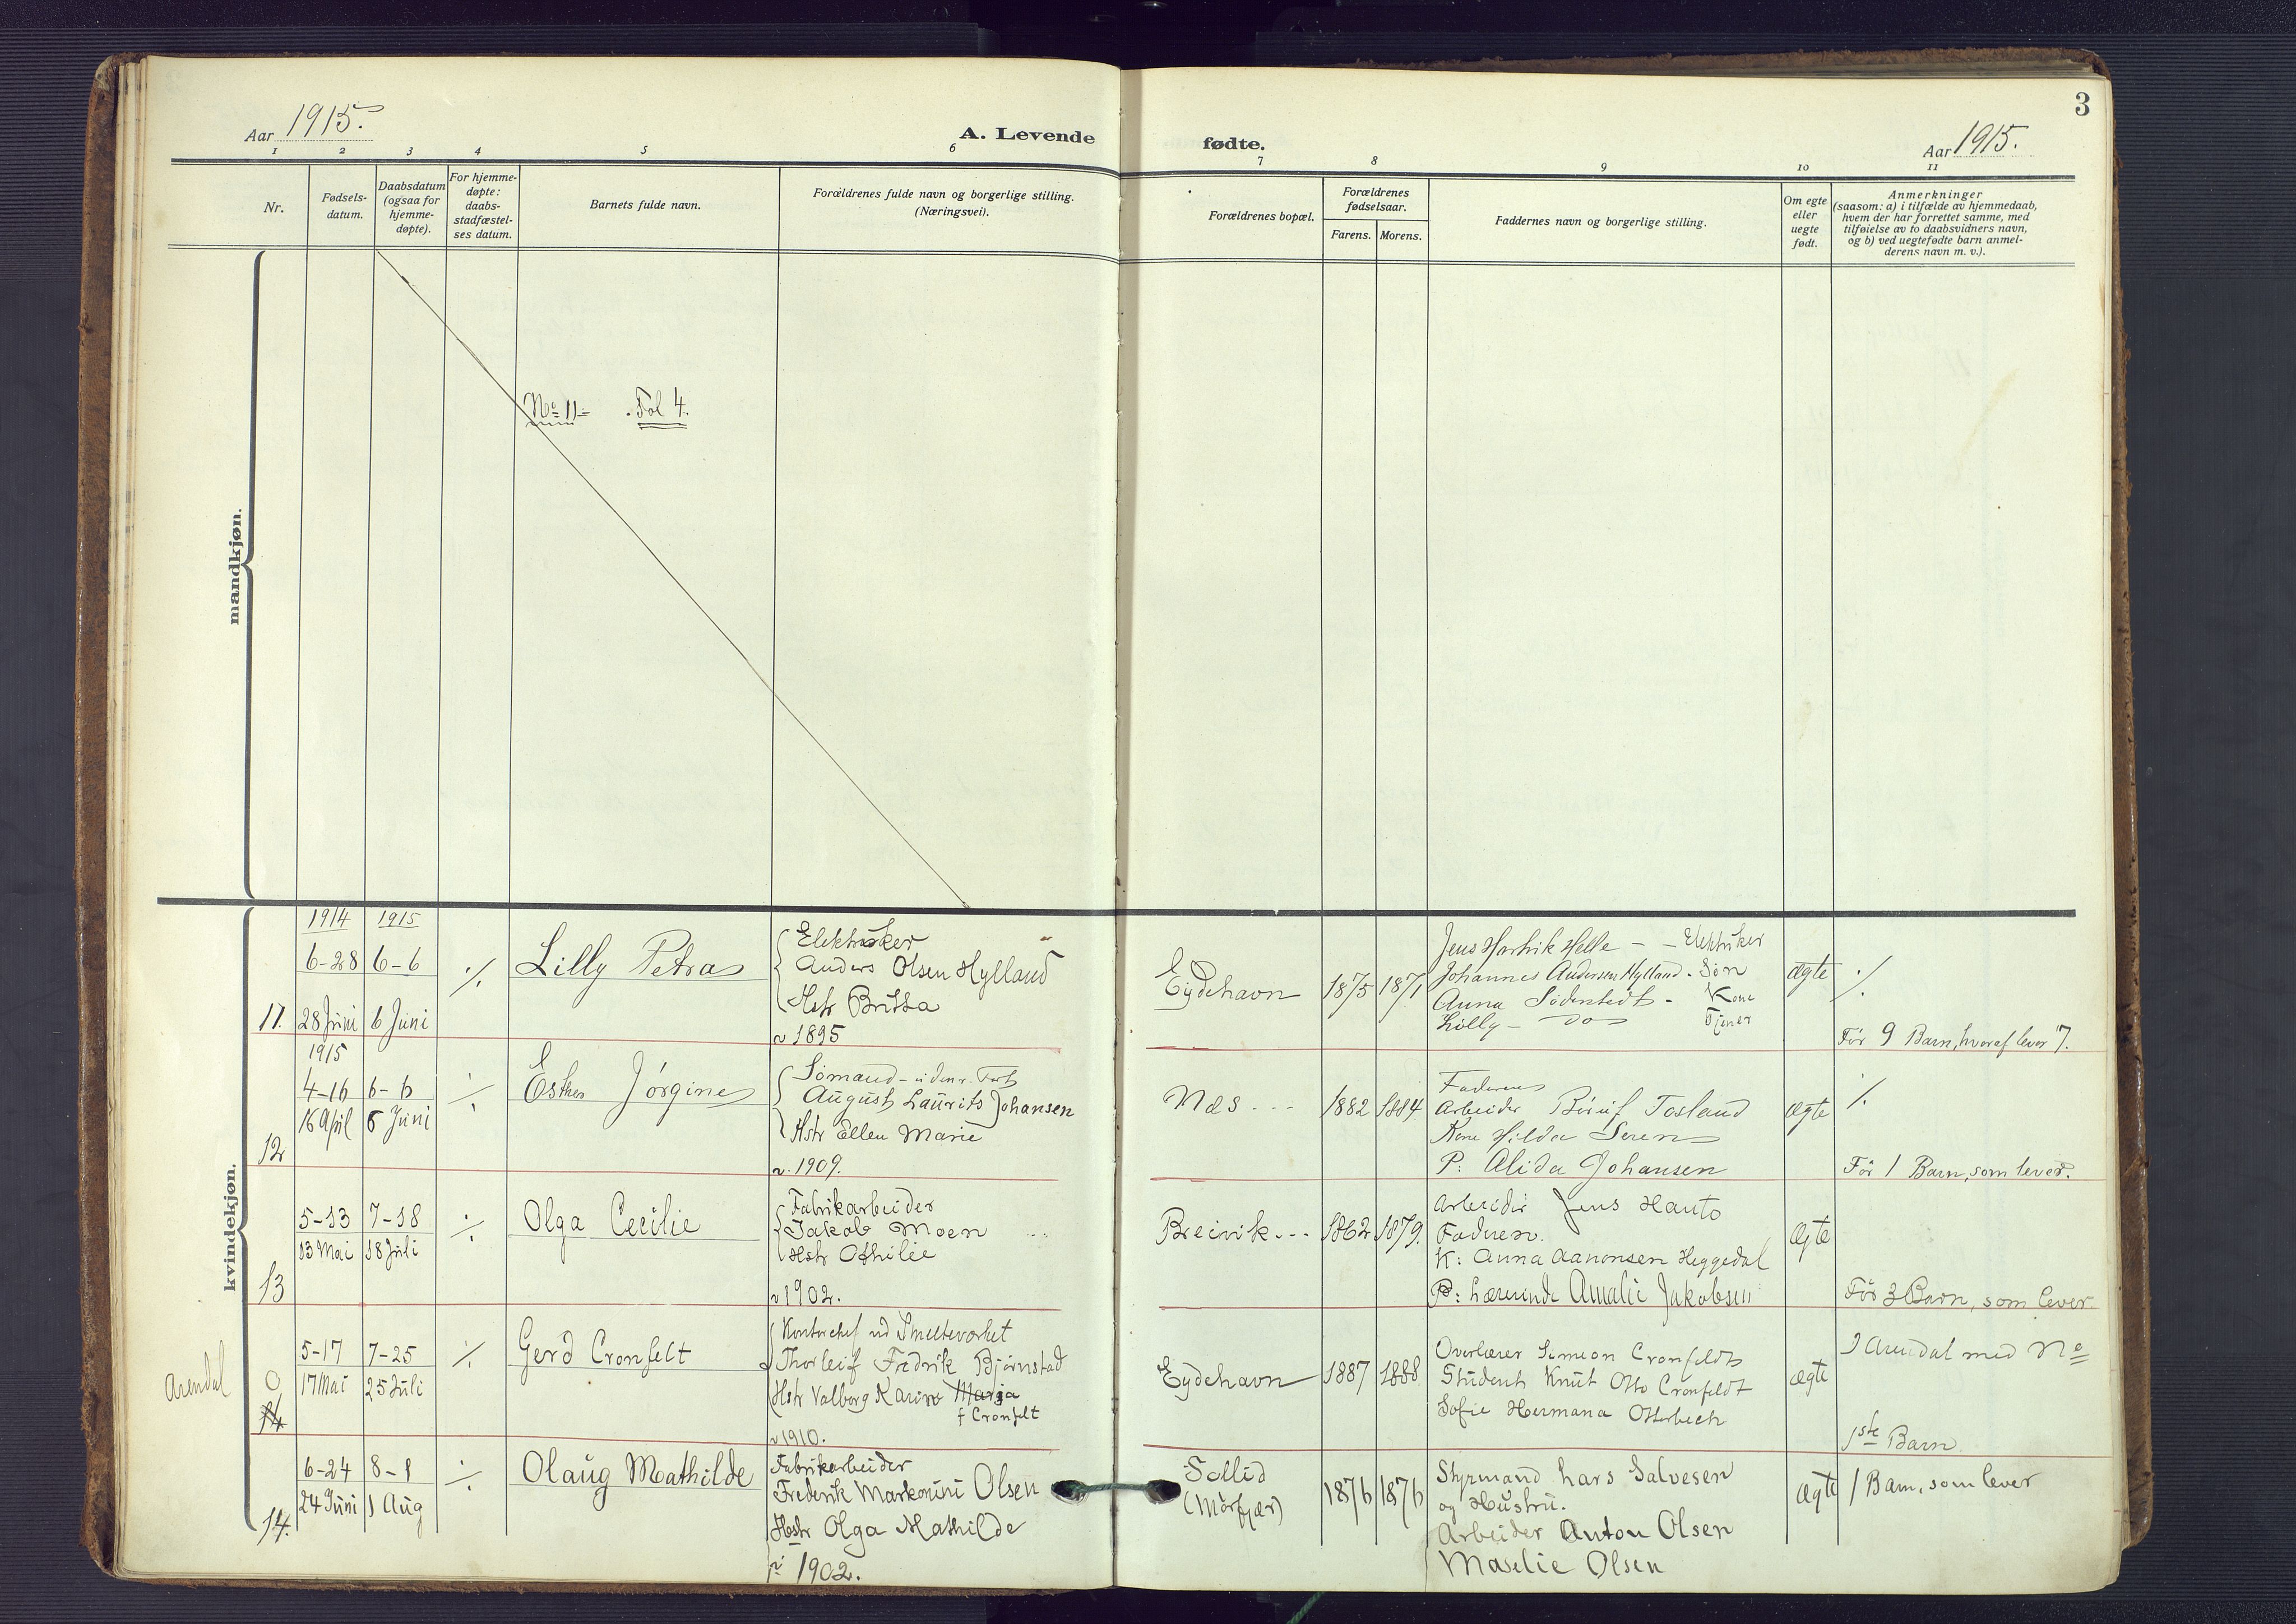 Aar 1915.
A. Levende fødte.
3
Aar 1915.
1 2 3 4 5 6 7 8 9 10 11
Nr.
Fødsels-
datum.
Daabsdatum
(ogsaa for
hjemme-
døpte).
For hjemme-
døpte:
daabs-
stadfæstel-
ses datum.
Barnets fulde navn.
Forældrenes fulde navn og borgerlige stilling.
(Næringsvei).
Forældrenes bopæl.
Forældrenes
fødselsaar.
Farens. Morens.
Faddernes navn og borgerlige stilling.
Om egte
eller
uegte
født.
Anmerkninger
(saasom: a) i tilfælde av hjemmedaab,
hvem der har forrettet samme, med
tilføielse av to daabsvidners navn,
og b) ved uegtefødte barn anmel-
derens navn m. v.).
mandkjøn.
No 11 Fol 4.
kvindekjøn.
11.
1914 1915
6-28 6-6
28 Juni 6 Juni
./.
Lilly Petra
Elektriker
Anders Olsen Hylland
Hstr Britta
v 1895
Eydehavn
1875 1871
Jens Hartvik Helle - - Elektriker
Johannes Andersen Hylland - Søn
Anna Söderstedt - Kone
Lilly - do Tjener
ægte
./.
Før 9 Barn, hvoraf lever 7.
12
1915
4-16 6-6
16 April 6 Juni
./.
Esther Jørgine
Sømand - udenr. Fart
August Laurits Johansen
Hstr Ellen Marie
v. 1909.
Næs ---
1882 1884
Faderen
Arbeider Tosland
Kone Hilda
P: Alida Johansen
ægte
./.
Før 1 Barn, som lever.
13
5-13 7-18
13 Mai 18 Juli
./.
Olga Cecilie
Fabrikarbeider
Jakob Moen
Hstr Othilie
v 1902.
Breivik ---
1862 1879.
Arbeider Jens Hauto
Faderen.
K: Anna Aanonsen Heggedal
P: Lærerinde Amalie Jakobsen
ægte
Før 3 Barn, som lever
Arendal
0
14
5-17 7-25
17 Mai 25 Juli
./.
Gerd Cronfelt
Kontorchef ved Smelteverket
Thorleif Fredrik Bjørnstad
Hstr Valborg Karine Marja
f Cronfelt
v 1910.
Eydehavn
1887 1888
Overlærer Simeon Cronfeldt
Student Knut Otto Cronfeldt
Sofie Hermana Otterbech
ægte
I Arendal med No
1ste Barn
14.
6-24 8-1
24 Juni 1 Aug
./.
Olaug Mathilde
Fabrikarbeider
Frederik Markonini Olsen
Hstr Olga Mathilde
v 1902.
Sollid
(Mörfjær)
1876 1876
Styrmand Lars Salvesen
og Hustru.
Arbeider Anton Olsen
Maelie Olsen
ægte
1 Barn, som lever